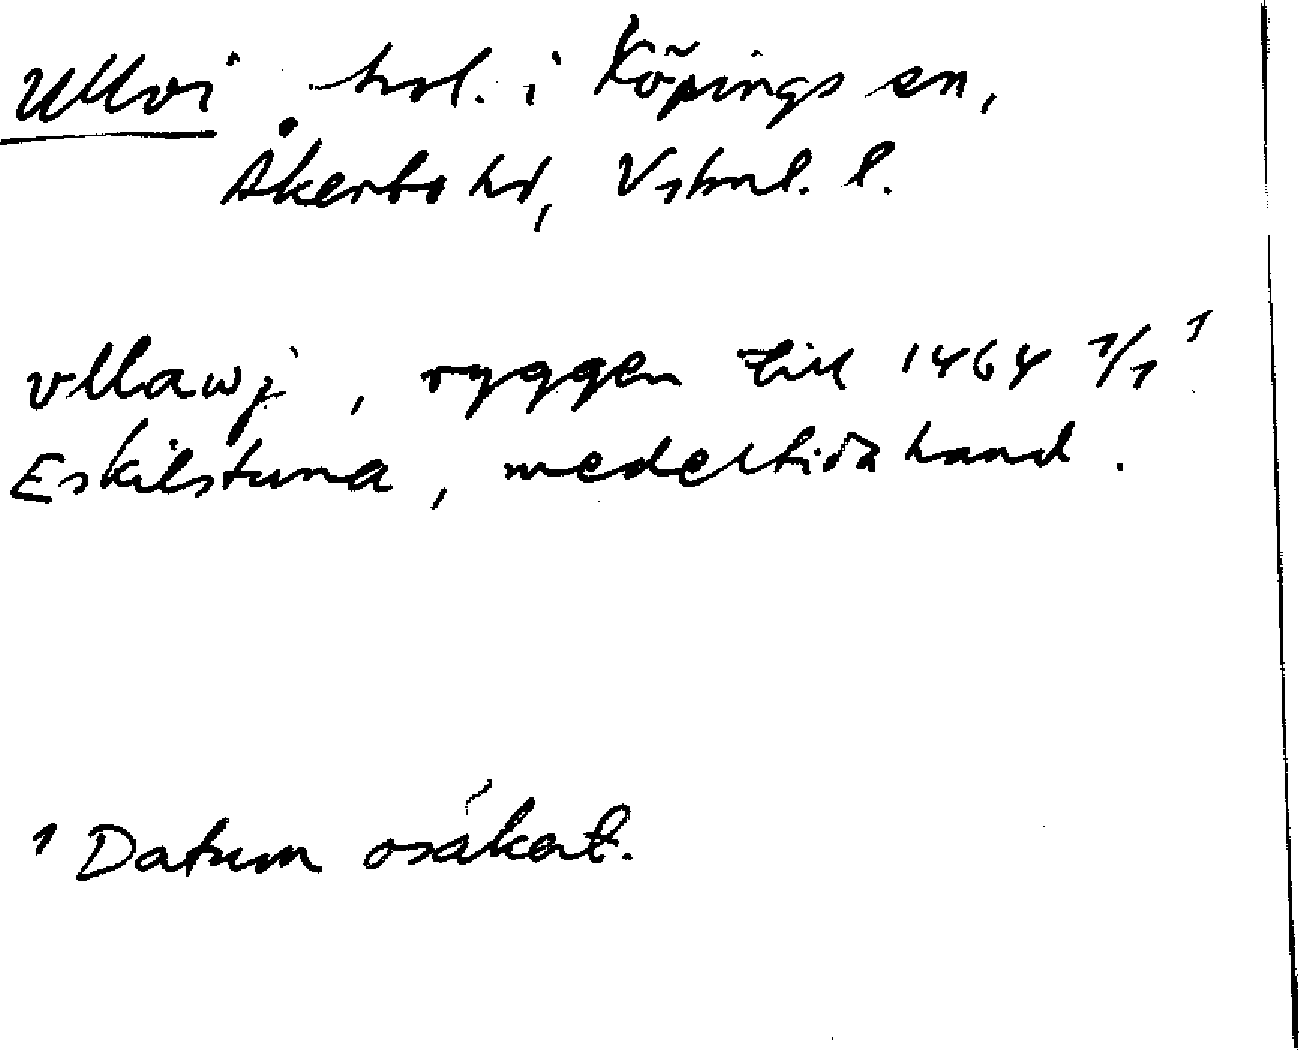 Ullvi hsl. i Köpings sn,
Åkerbo hd, Vstml. l.
vllawj, ryggen till 1464 1/1 ¹
Eskilstuna, medeltida hand.
¹ Datum osäkert.